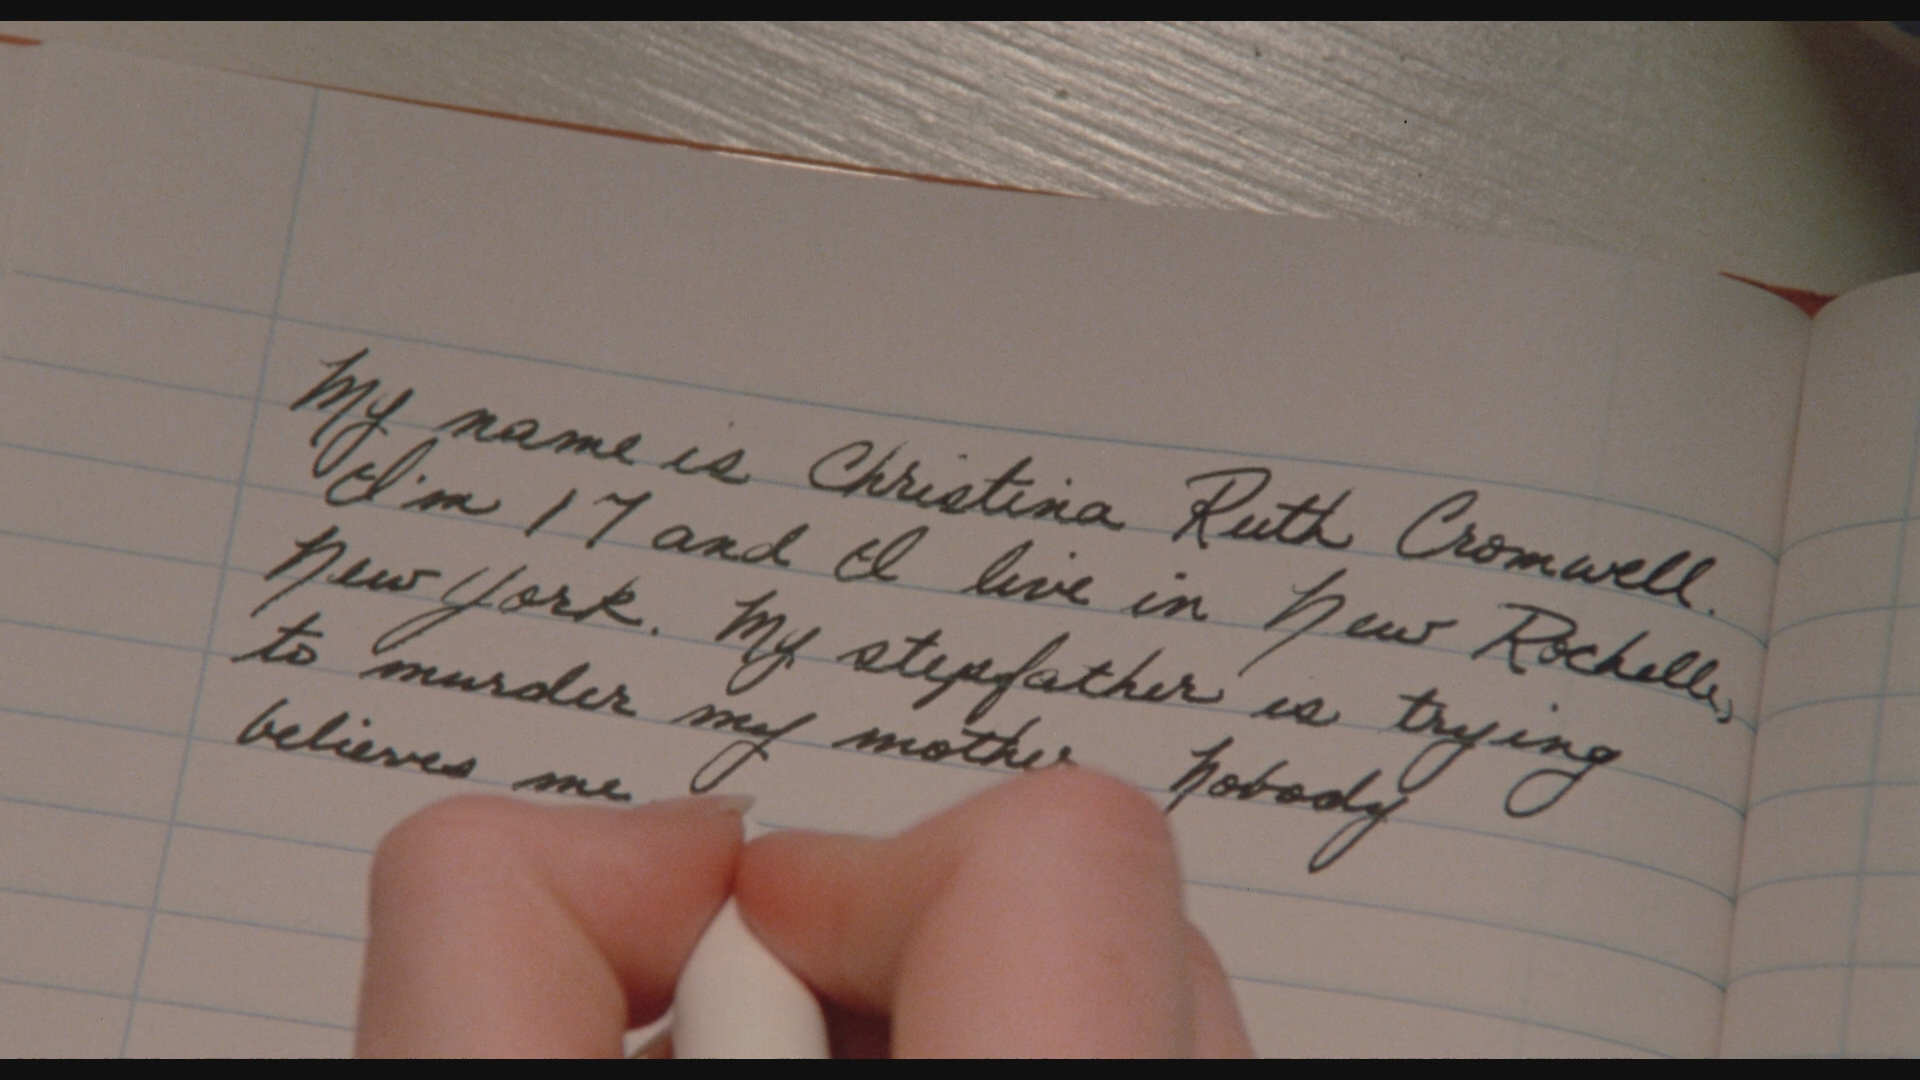 My name is Christina Ruth Cromwell.
I'm 17 and I live in New Rochelle,
New York. My stepfather is trying
to murder my mother Nobody
believes me.